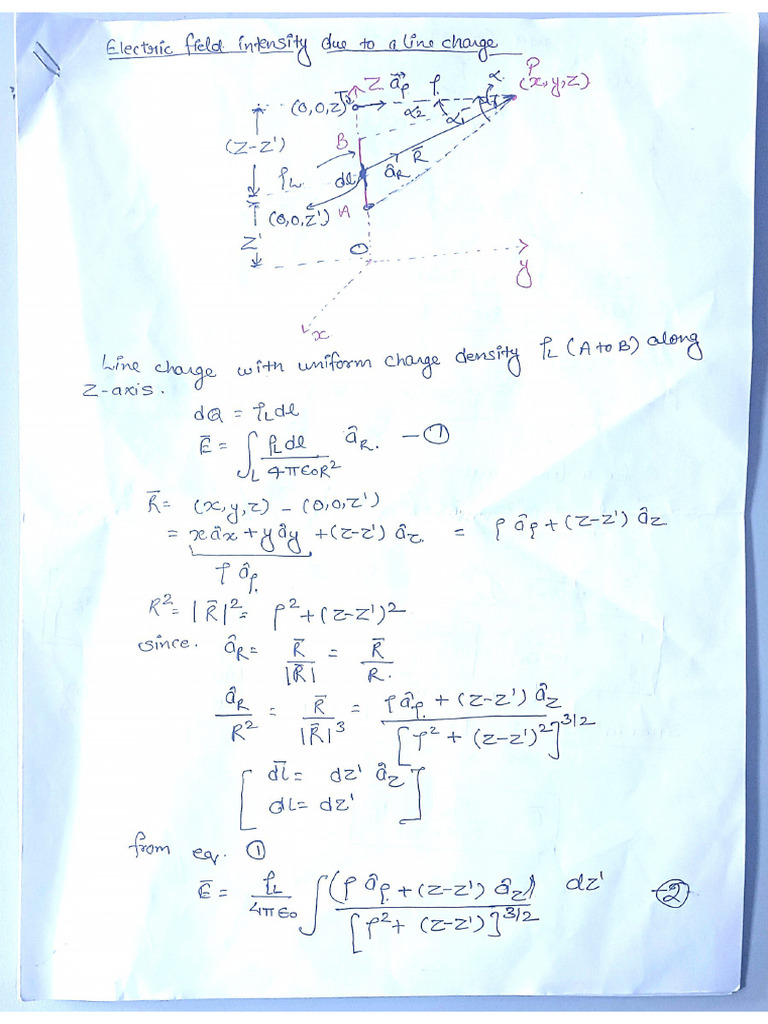 11
Electric field intensity due to a line charge
Z a⃗ρ ρ α. P
(0,0,z) T (x,y,z)
α2 α1
(z-z')
B
ρL dl âR R̄
(0,0,z') A
z'
O
y
x
Line charge with uniform charge density ρL (A to B) along
Z-axis.
dQ = ρL dl
Ē = ∫L ρL dl / 4πε0R² âR. — ①
R̄ = (x,y,z) - (0,0,z')
= xâx + yây + (z-z') âz. = ρ âρ + (z-z') âz
ρ âρ.
R² = |R̄|² = ρ² + (z-z')²
since. âR = R̄ / |R̄| = R̄ / R.
âR / R² = R̄ / |R̄|³ = ρâρ. + (z-z') âz / [ρ² + (z-z')²]^3/2
[ dl̄ = dz' âz
dl = dz' ]
from eq. ①
Ē = ρL / 4πε0 ∫ (ρ âρ. + (z-z') âz) / [ρ² + (z-z')]^3/2 dz' — ②